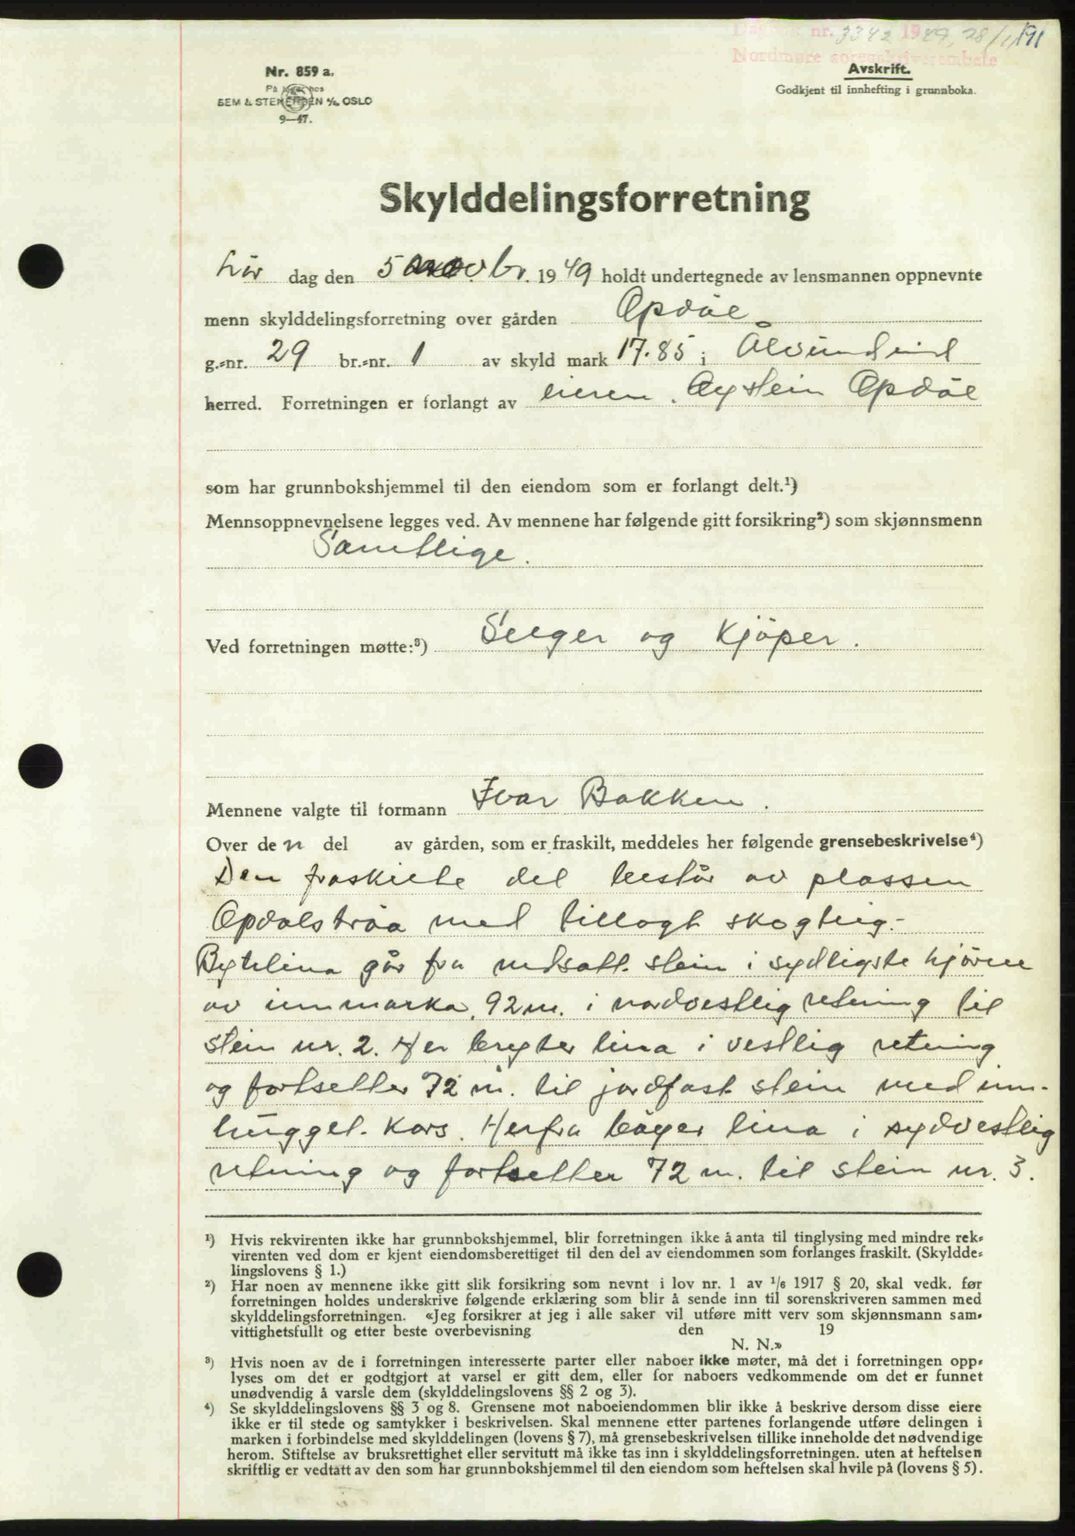 Dagbok nr. 3342 1949, 28/11 191
Nordmøre sorenskriverembete
Nr. 859 a.
På lager hos
SEM & STENERSEN A/S, OSLO
9—47.
Avskrift.
Godkjent til innhefting i grunnboka.
Skylddelingsforretning
Lör dag den 5 novbr. 1949 holdt undertegnede av lensmannen oppnevnte
menn skylddelingsforretning over gården Opdöl
g.-nr. 29 br.-nr. 1 av skyld mark 17.85 i Ålvundeid
herred. Forretningen er forlangt av eieren. Øystein Opdöl
som har grunnbokshjemmel til den eiendom som er forlangt delt.¹)
Mennsoppnevnelsene legges ved. Av mennene har følgende gitt forsikring²) som skjønnsmenn
Samtlige.
Ved forretningen møtte:³) Selger og Kjöper.
Mennene valgte til formann Ivar Bakken.
Over den del av gården, som er fraskilt, meddeles her følgende grensebeskrivelse⁴)
Den fraskilte del består av plassen
Opdalstrøa med tillagt skogteig.-
Bytelina går fra nedsatt stein i sydligste hjörne
av innmarka, 92 m. i nordvestlig retning til
stein nr. 2. Her bryter lina i vestlig retning
og fortsetter 72 m. til jordfast stein med inn-
hugget kors. Herfra böyer lina i sydvestlig
retning og fortsetter 72 m. til stein nr. 3.
¹) Hvis rekvirenten ikke har grunnbokshjemmel, blir forretningen ikke å anta til tinglysing med mindre rek-
virenten ved dom er kjent eiendomsberettiget til den del av eiendommen som forlanges fraskilt. (Skyldde-
lingslovens § 1.)
²) Har noen av mennene ikke gitt slik forsikring som nevnt i lov nr. 1 av 1/6 1917 § 20, skal vedk. før
forretningen holdes underskrive følgende erklæring som blir å sende inn til sorenskriveren sammen med
skylddelingsforretningen. «Jeg forsikrer at jeg i alle saker vil utføre mitt verv som skjønnsmann sam-
vittighetsfullt og etter beste overbevisning den 19
N. N.»
³) Hvis noen av de i forretningen interesserte parter eller naboer ikke møter, må det i forretningen opp-
lyses om det er godtgjort at varsel er gitt dem, eller for naboers vedkommende om det er funnet
unødvendig å varsle dem (skylddelingslovens §§ 2 og 3).
⁴) Se skylddelingslovens §§ 3 og 8. Grensene mot naboeiendommen blir ikke å beskrive dersom disse eiere
ikke er til stede og samtykker i beskrivelsen. Skal mennene etter partenes forlangende utføre delingen i
marken i forbindelse med skylddelingen (lovens § 7), må grensebeskrivelsen tillike inneholde det nødvendige
herom. Stiftelse av bruksrettighet eller servitutt må ikke tas inn i skylddelingsforretningen. uten at heftelsen
skriftlig er vedtatt av den som har grunnbokshjemmel til den eiendom som heftelsen skal hvile på (lovens § 5).